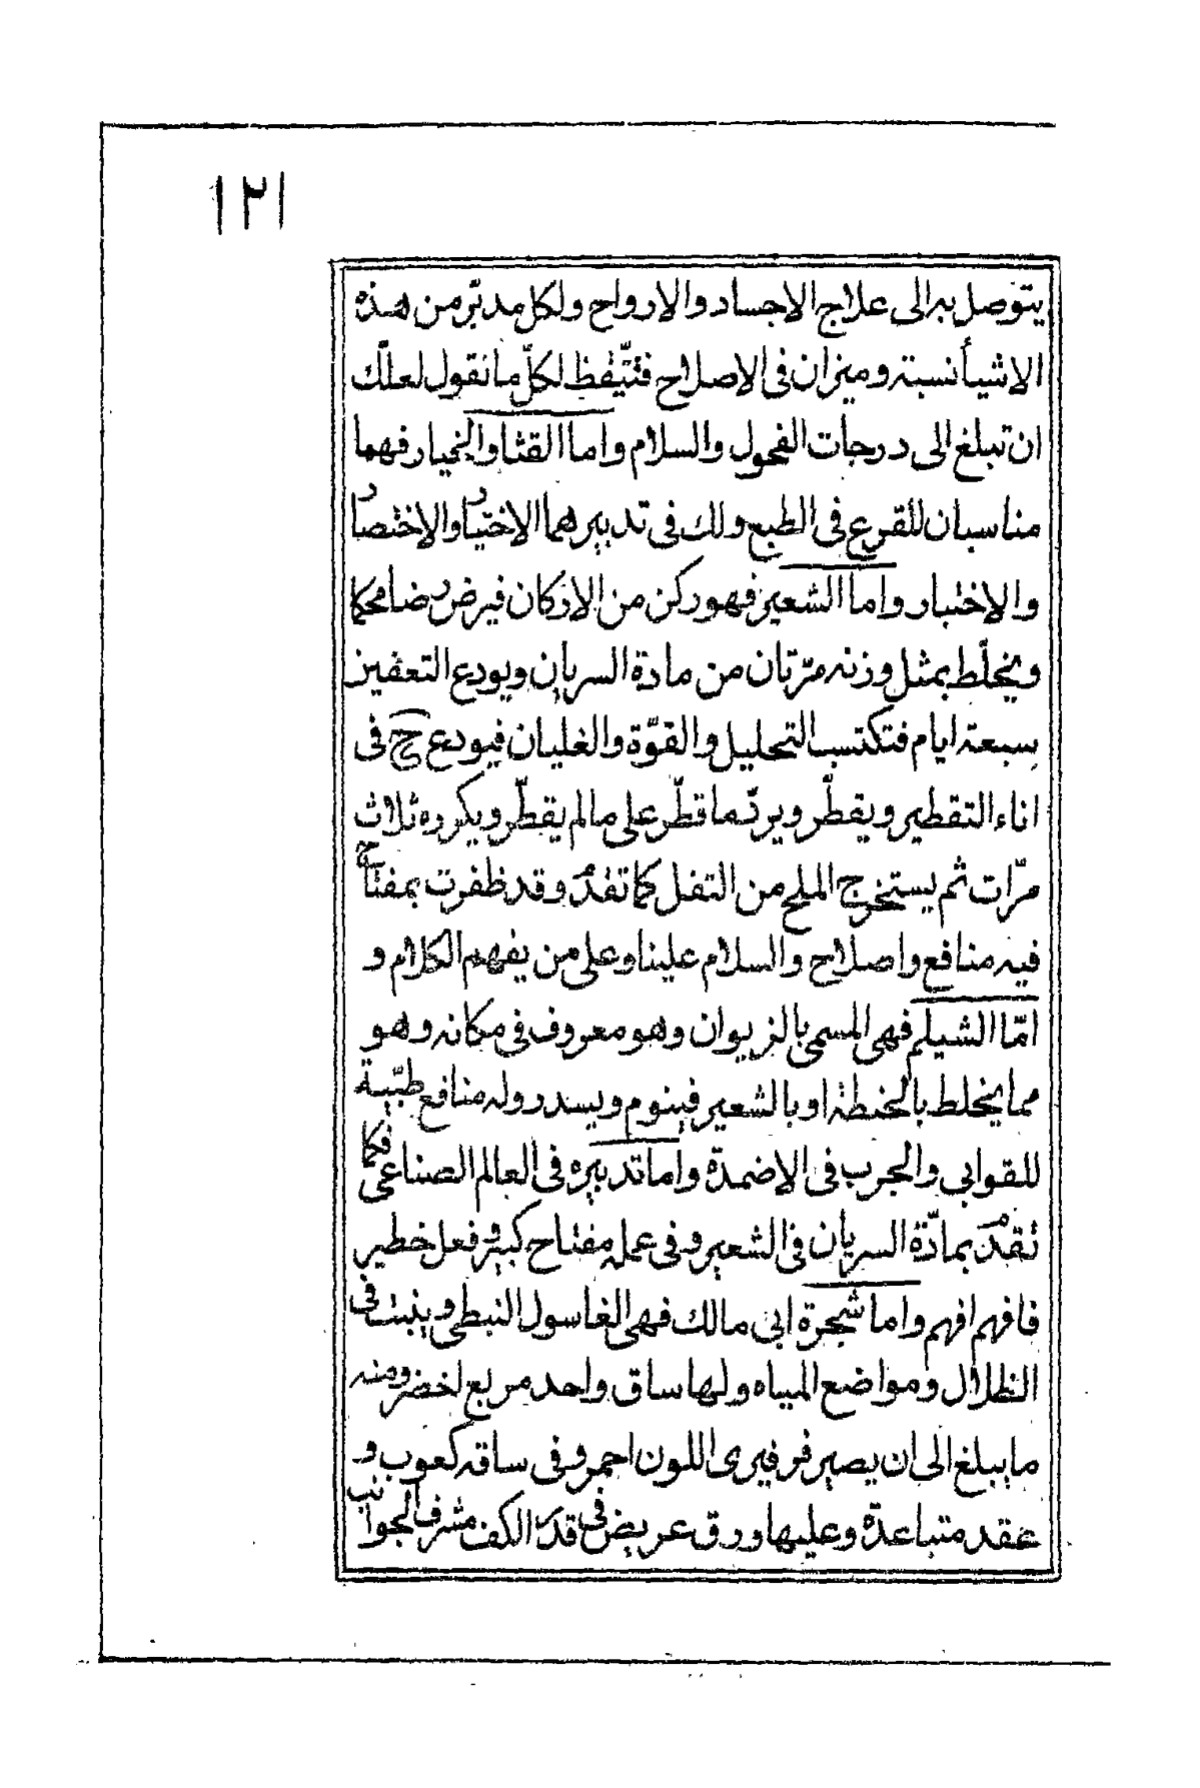 ١٢١
يتوصل به الى علاج الاجساد والارواح ولكل مدبّر من هذه
الاشيأ نسبته وميزان فى الاصلاح فتيّقظ لكلّ ما نقول لعلّك
ان تبلغ الى درجات الفحول والسلام واما القثا والخيار فهما
مناسبان للقرع فى الطبع ولك فى تدبيرهما الاختيار والاختصار
والاختبار واما الشعير فهو ركن من الاركان فيرض رضا محكما
ويخلّط بمثل وزنه مرّتان من مادة السريان ويودع التعفين
سبعة ايام فتكتسب التحليل والقوّة والغليان فيودع ح فى
اناء التقطير ويقطّر ويردّ ما قطّر على ما لم يقطّر ويكرره ثلاث
مرّات ثم يستخرج الملح من التفل كما تقدم وقد ظفرت بمفتاح
فيه منافع واصلاح والسلام علينا وعلى من يفهم الكلام و
امّا الشيلم فهى المسمى بالزيوان وهو معروف فى مكانه وهو
مما يخلط بالحنطة او بالشعير فينوم ويسدر وله منافع طبّية
للقوابى والجرب فى الاضمدة واما تدبيره فى العالم الصناعى فكما
تقدم بمادّة السريان فى الشعير و فى عمله مفتاح كبير وفعل خطير
فافهم افهم واما شجرة ابى مالك فهى الغاسول النبطى وينبت فى
الظلال ومواضع المياه ولها ساق واحد مربع اخضر ومنه
ما يبلغ الى ان يصير فرفيرى اللون احمر وفى ساقه كعوب و
عقد متباعدة وعليها ورق عريض فى قدر الكف مشرف الجوانب